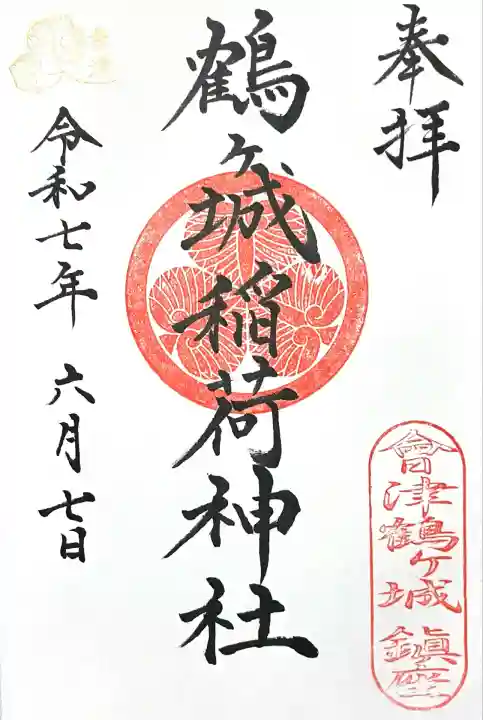 奉拝
鶴ヶ城稲荷神社
令和七年 六月七日
會津鶴ヶ城 鎮座